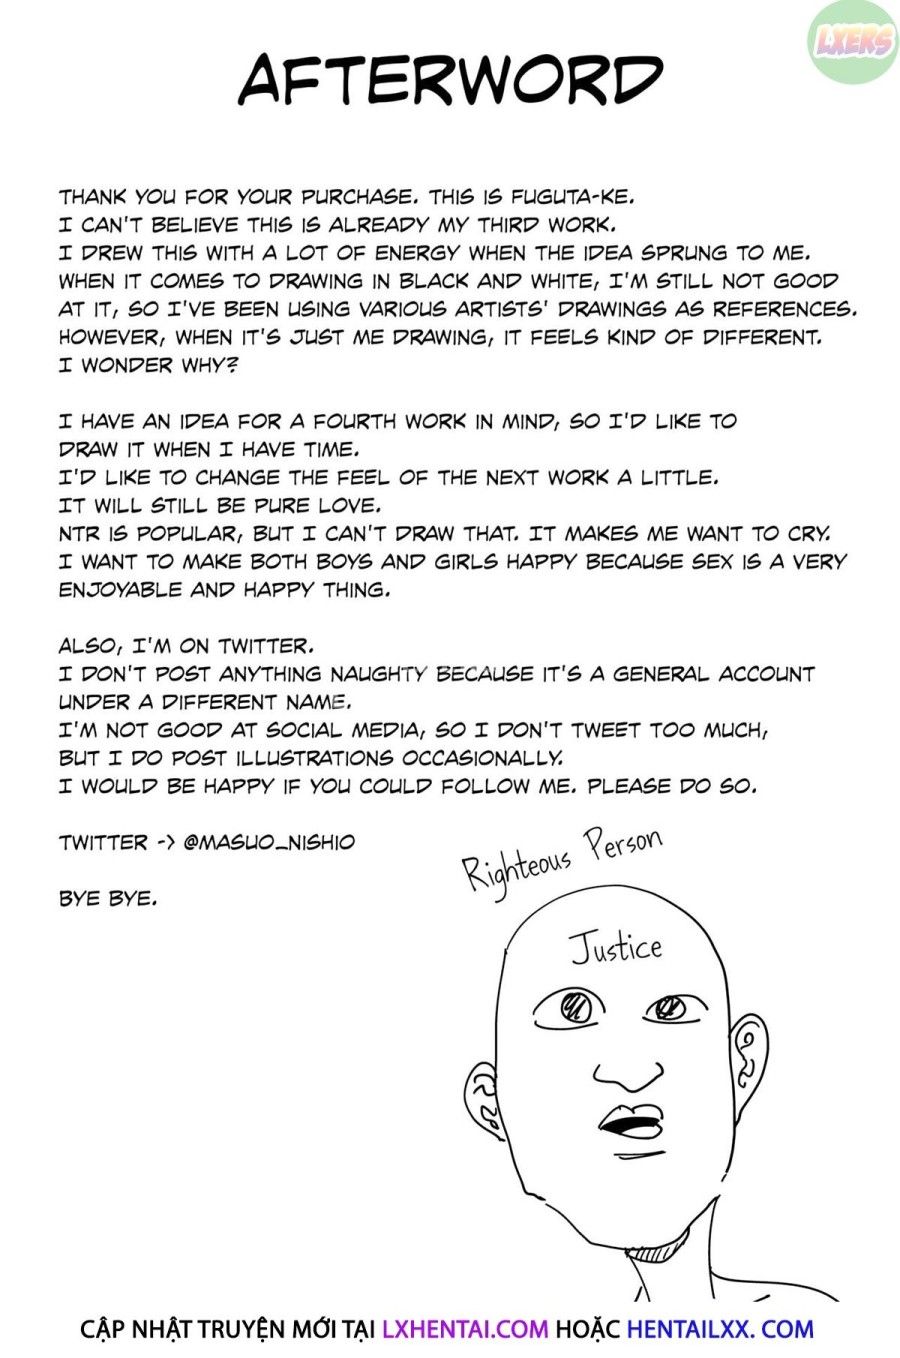 LXERS
AFTERWORD
THANK YOU FOR YOUR PURCHASE. THIS IS FUGUTA-KE.
I CAN'T BELIEVE THIS IS ALREADY MY THIRD WORK.
I DREW THIS WITH A LOT OF ENERGY WHEN THE IDEA SPRUNG TO ME.
WHEN IT COMES TO DRAWING IN BLACK AND WHITE, I'M STILL NOT GOOD
AT IT, SO I'VE BEEN USING VARIOUS ARTISTS' DRAWINGS AS REFERENCES.
HOWEVER, WHEN IT'S JUST ME DRAWING, IT FEELS KIND OF DIFFERENT.
I WONDER WHY?
I HAVE AN IDEA FOR A FOURTH WORK IN MIND, SO I'D LIKE TO
DRAW IT WHEN I HAVE TIME.
I'D LIKE TO CHANGE THE FEEL OF THE NEXT WORK A LITTLE.
IT WILL STILL BE PURE LOVE.
NTR IS POPULAR, BUT I CAN'T DRAW THAT. IT MAKES ME WANT TO CRY.
I WANT TO MAKE BOTH BOYS AND GIRLS HAPPY BECAUSE SEX IS A VERY
ENJOYABLE AND HAPPY THING.
ALSO, I'M ON TWITTER.
I DON'T POST ANYTHING NAUGHTY BECAUSE IT'S A GENERAL ACCOUNT
UNDER A DIFFERENT NAME.
I'M NOT GOOD AT SOCIAL MEDIA, SO I DON'T TWEET TOO MUCH,
BUT I DO POST ILLUSTRATIONS OCCASIONALLY.
I WOULD BE HAPPY IF YOU COULD FOLLOW ME. PLEASE DO SO.
TWITTER -> @MASUO_NISHIO
BYE BYE.
Righteous Person
Justice
CẬP NHẬT TRUYỆN MỚI TẠI LXHENTAI.COM HOẶC HENTAILXX. COM